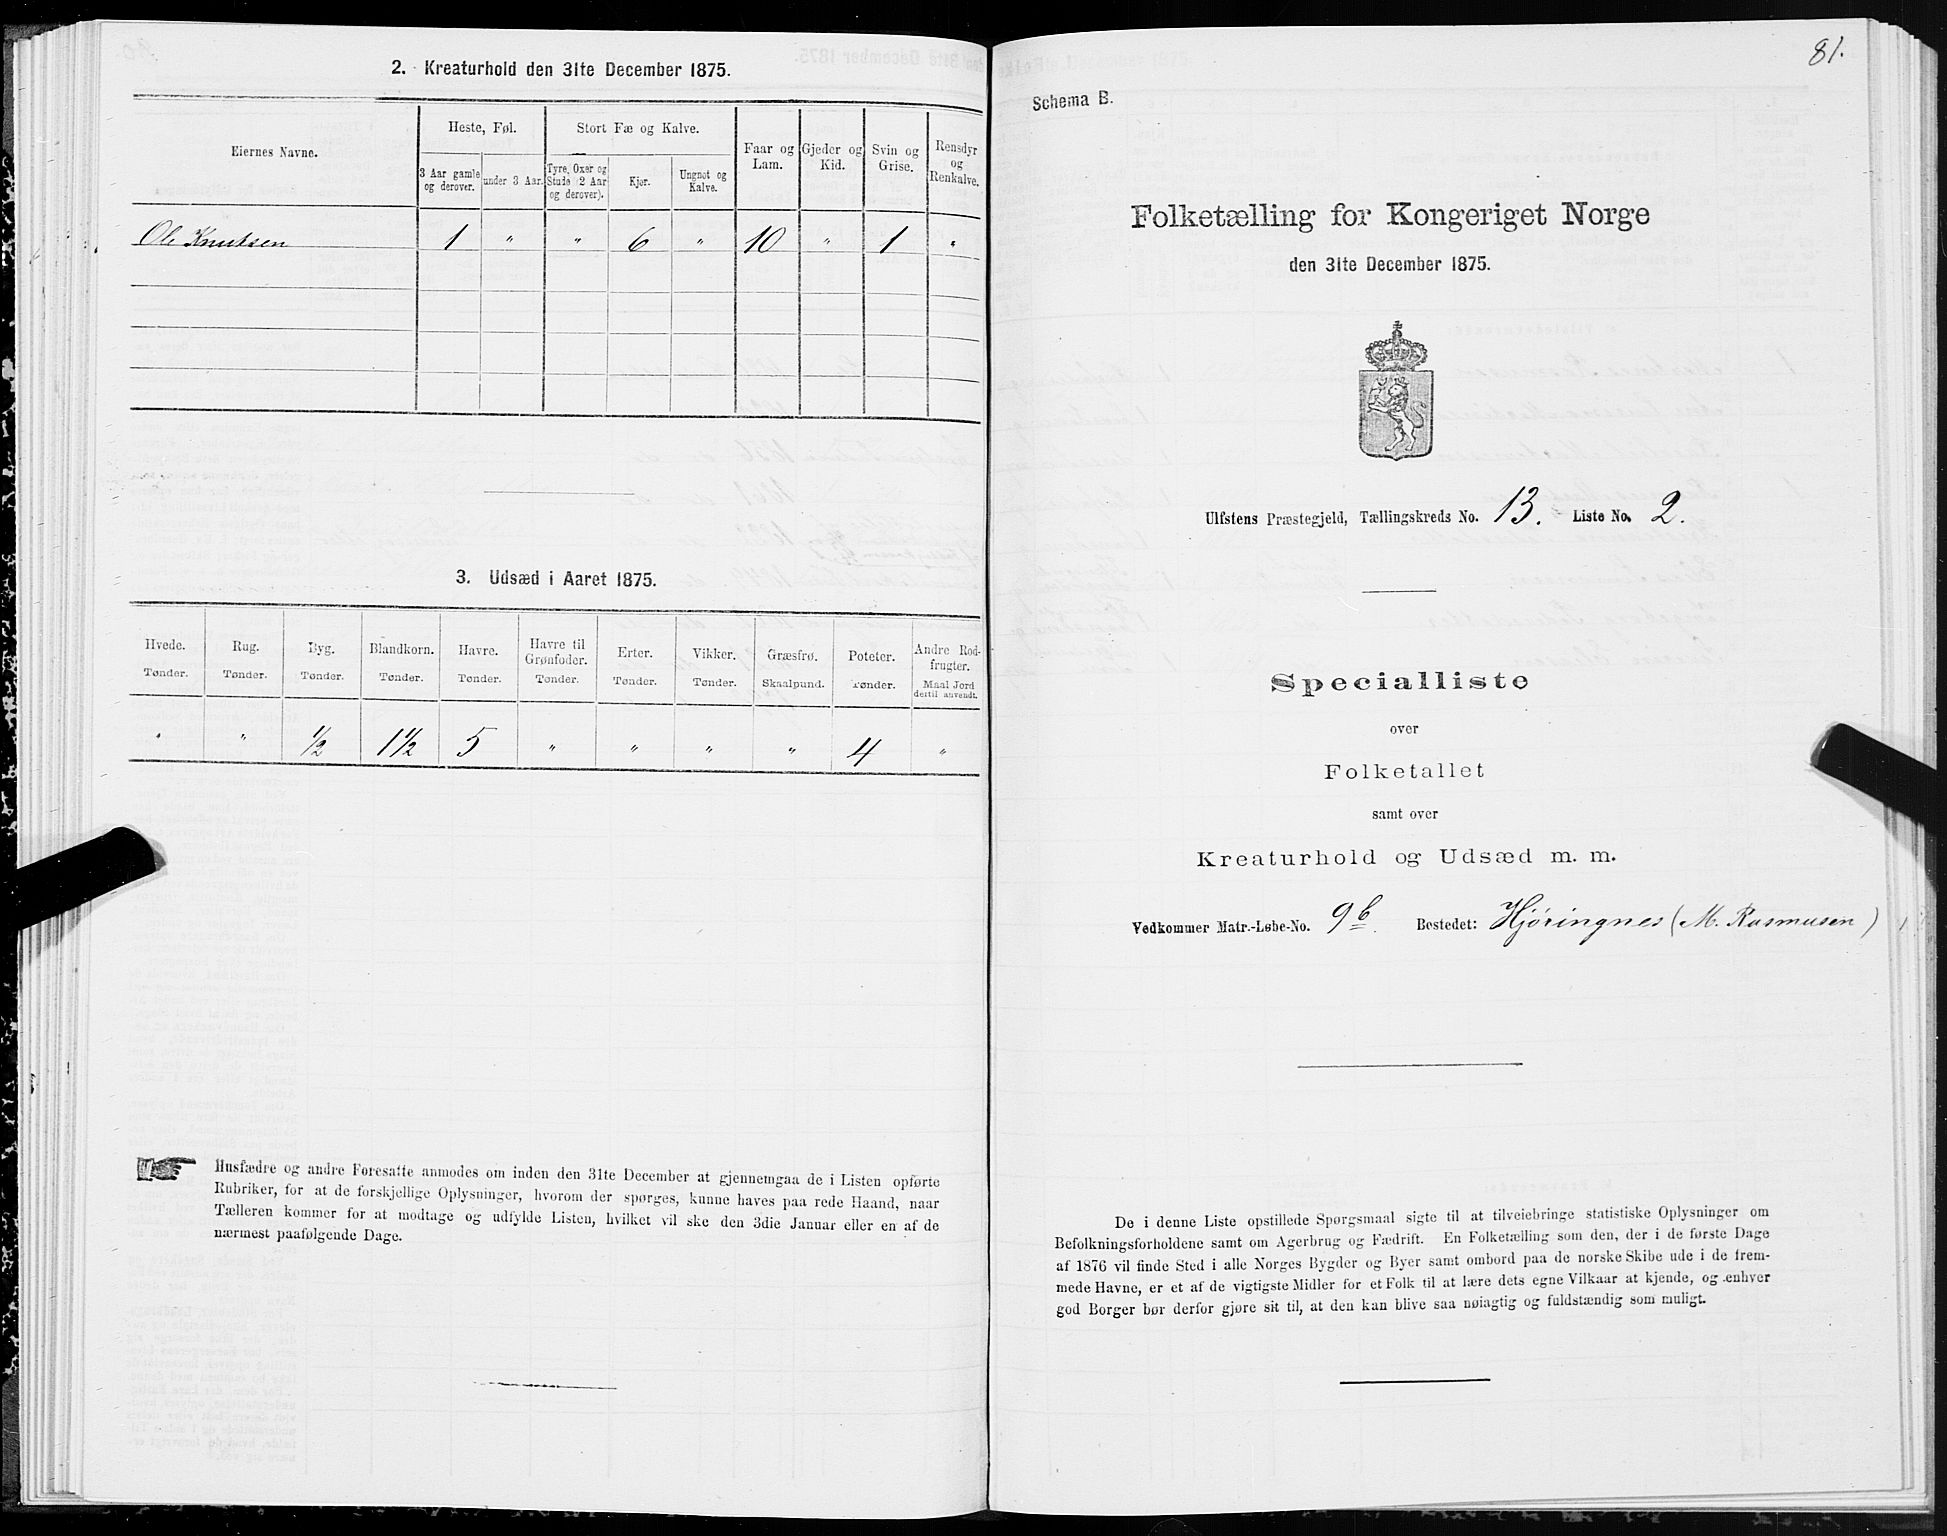 2. Kreaturhold den 31te December 1875.
Eiernes Navne.
Heste, Føl.
Stort Fæ og Kalve.
Faar og
Lam.
Gjeder og
Kid.
Svin og
Grise.
Rensdyr
og
Renkalve.
3 Aar gamle
og derover.
under 3 Aar.
Tyre, Oxer og
Stude (2 Aar
og derover).
Kjør.
Ungnøt og
Kalve.
Ole Knutsen 1 " " 6 " 10 " 1 "
3. Udsæd i Aaret 1875.
Hvede.
Tønder.
Rug.
Tønder.
Byg.
Tønder.
Blandkorn.
Tønder.
Havre.
Tønder.
Havre til
Grønfoder.
Tønder.
Erter.
Tønder.
Vikker.
Tønder.
Græsfrø.
Skaalpund.
Poteter.
Tønder.
Andre Rod-
frugter.
Maal Jord
dertil anvendt.
" " 1/2 1 1/2 5 " " " " 4 "
Husfædre og andre Foresatte anmodes om inden den 31te December at gjennemgaa de i Listen opførte
Rubriker, for at de forskjellige Oplysninger, hvorom der spørges, kunne haves paa rede Haand, naar
Tælleren kommer for at modtage og udfylde Listen, hvilket vil ske den 3die Januar eller en af de
nærmest paafølgende Dage.
81.
Schema B.
Folketælling for Kongeriget Norge
den 31te December 1875.
Ulfstens Præstegjeld, Tællingskreds No. 13. Liste No. 2.
Specialliste
over
Folketallet
samt over
Kreaturhold og Udsæd m. m.
Vedkommer Matr.-Løbe-No. 9b. Bostedet: Hjøringnes (M. Rasmusen)
De i denne Liste opstillede Spørgsmaal sigte til at tilveiebringe statistiske Oplysninger om
Befolkningsforholdene samt om Agerbrug og Fædrift. En Folketælling som den, der i de første Dage
af 1876 vil finde Sted i alle Norges Bygder og Byer samt ombord paa de norske Skibe ude i de frem-
mede Havne, er et af de vigtigste Midler for et Folk til at lære dets egne Vilkaar at kjende, og enhver
god Borger bør derfor gjøre sit til, at den kan blive saa nøiagtig og fuldstændig som muligt.